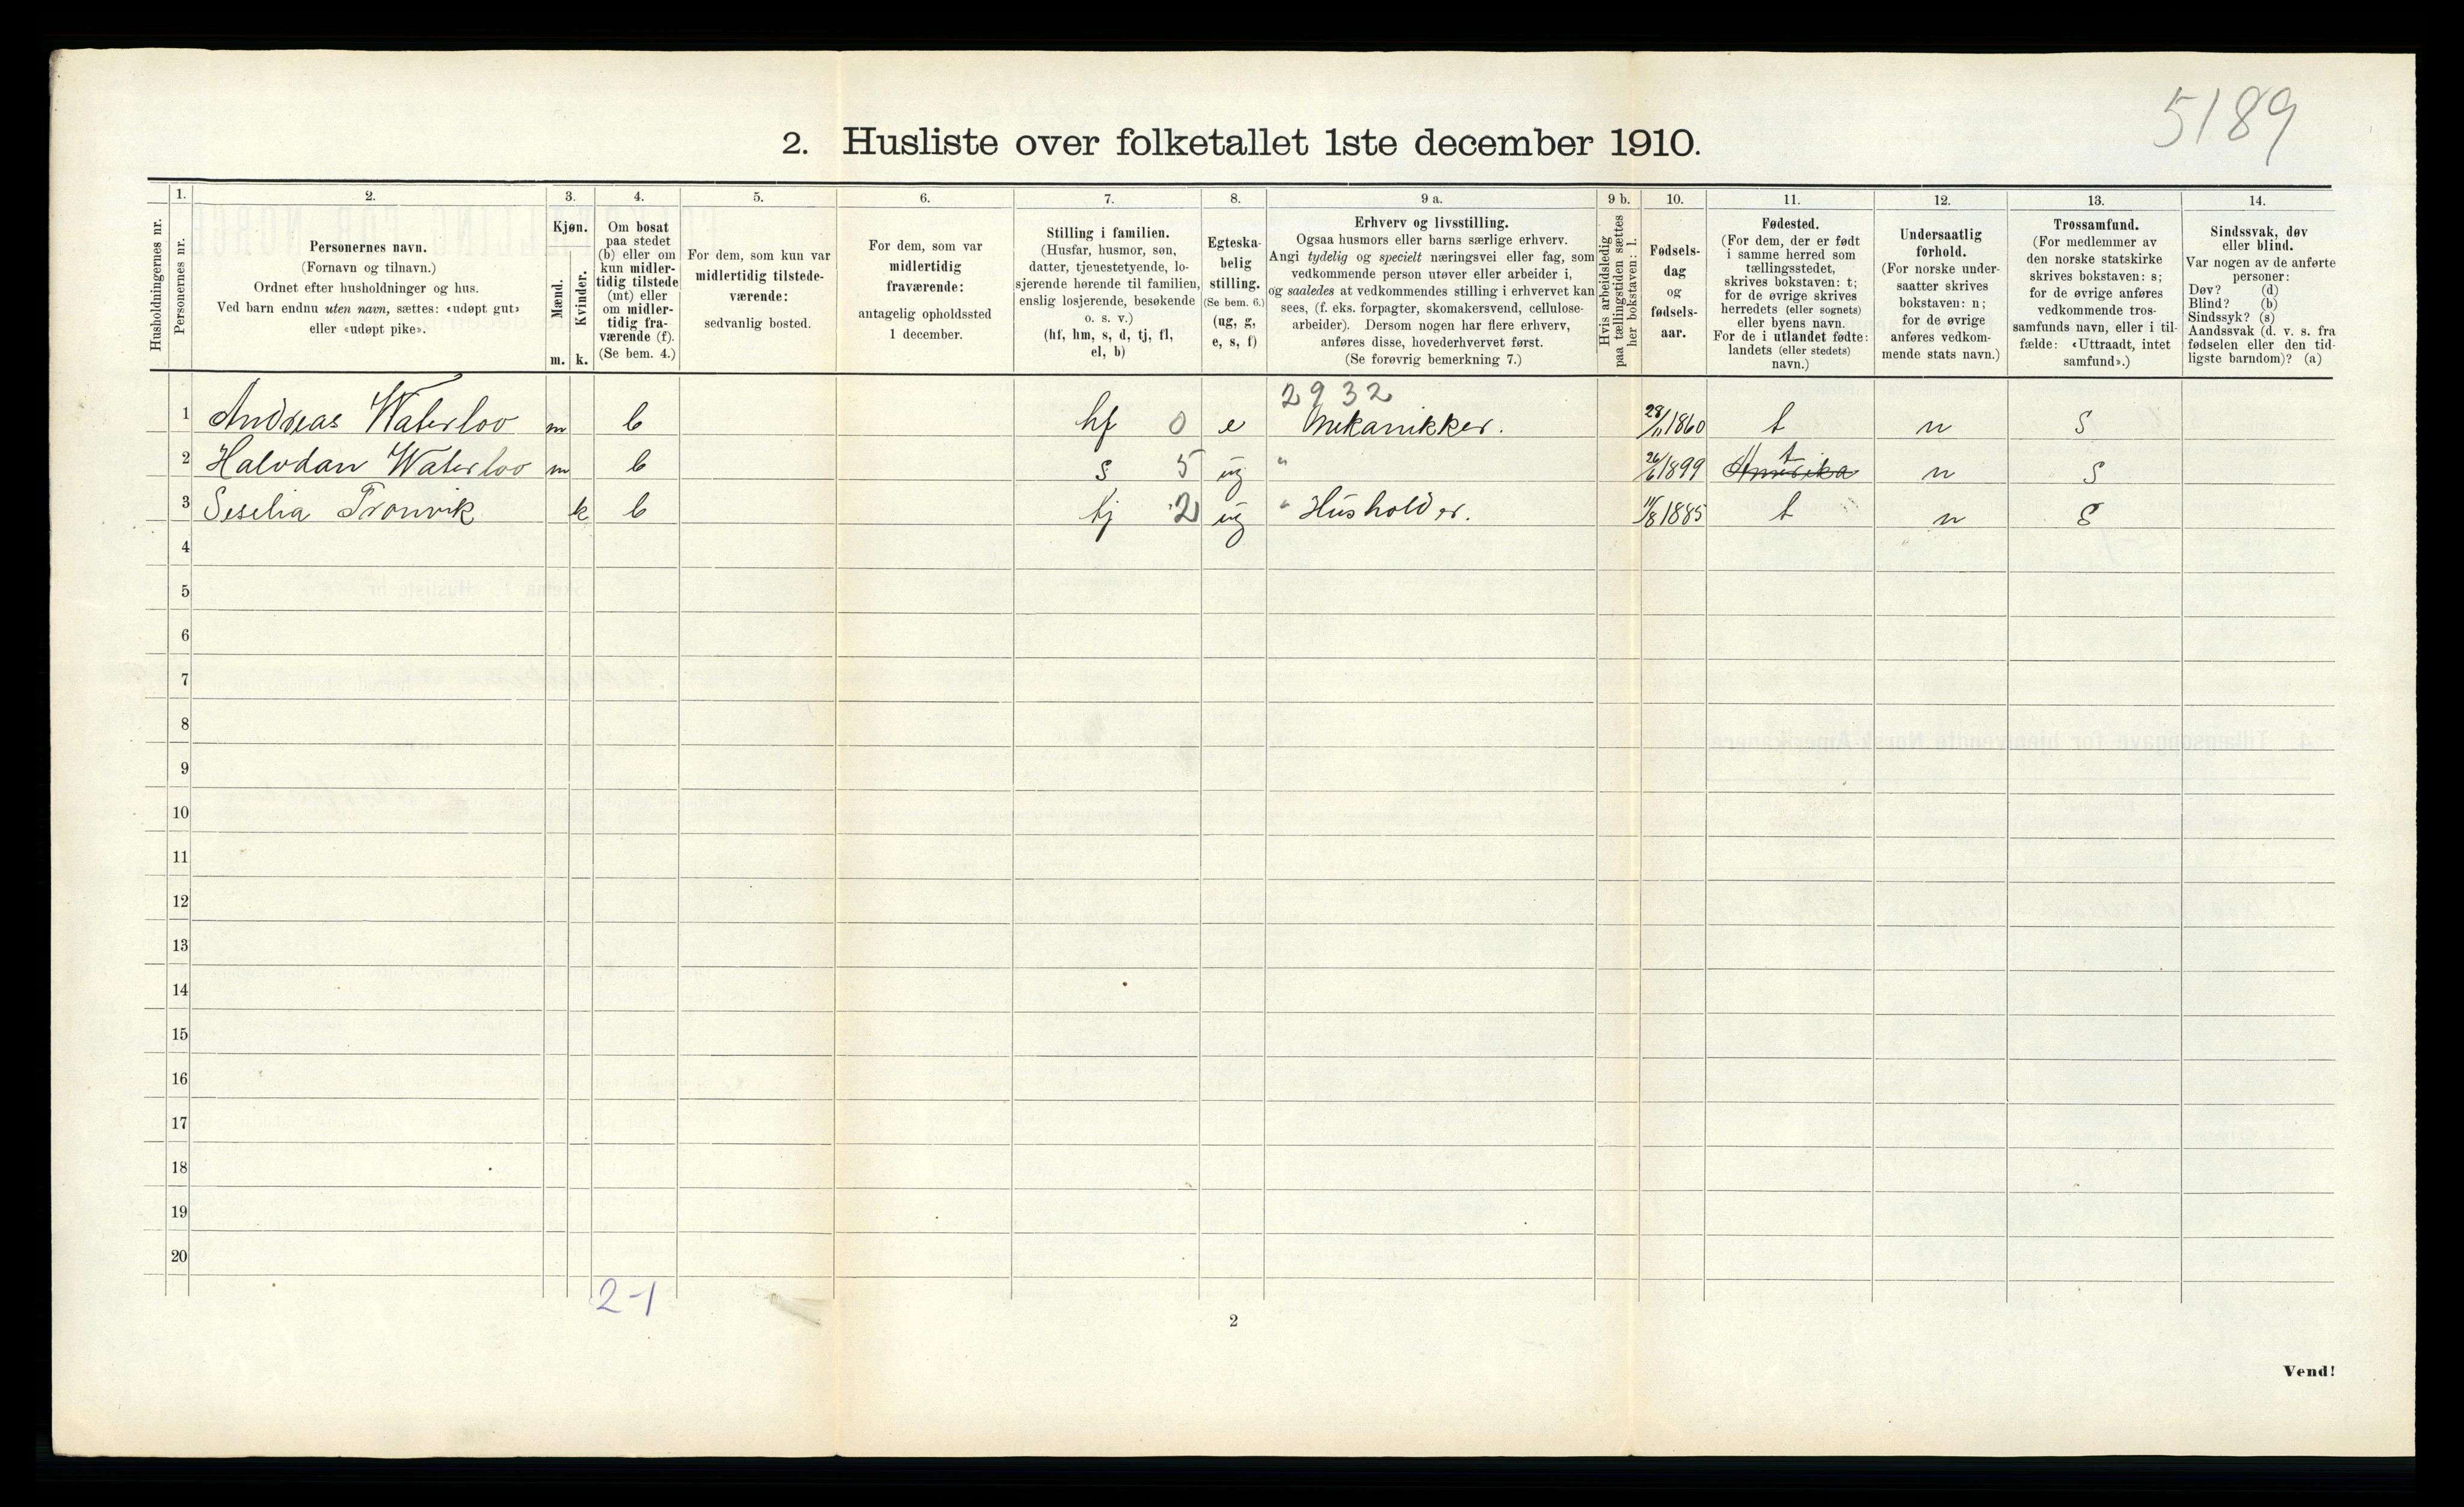 5189
2. Husliste over folketallet 1ste december 1910.
Husholdningernes nr.
1.
Personernes nr.
2.
Personernes navn.
(Fornavn og tilnavn.)
Ordnet efter husholdninger og hus.
Ved barn endnu uten navn, sættes: «udøpt gut»
eller «udøpt pike».
3.
Kjøn.
Mænd.
Kvinder.
m. k.
4.
Om bosat
paa stedet
(b) eller om
kun midler-
tidig tilstede
(mt) eller
om midler-
tidig fra-
værende (f).
(Se bem. 4.)
5.
For dem, som kun var
midlertidig tilstede-
værende:
sedvanlig bosted.
6.
For dem, som var
midlertidig
fraværende:
antagelig opholdssted
1 december.
7.
Stilling i familien.
(Husfar, husmor, søn,
datter, tjenestetyende, lo-
sjerende hørende til familien,
enslig losjerende, besøkende
o. s. v.)
(hf, hm, s, d, tj, fl,
el, b)
8.
Egteska-
belig
stilling.
(Se bem. 6.)
(ug, g,
e, s, f)
9 a.
Erhverv og livsstilling.
Ogsaa husmors eller barns særlige erhverv.
Angi tydelig og specielt næringsvei eller fag, som
vedkommende person utøver eller arbeider i,
og saaledes at vedkommendes stilling i erhvervet kan
sees, (f. eks. forpagter, skomakersvend, cellulose-
arbeider). Dersom nogen har flere erhverv,
anføres disse, hovederhvervet først.
(Se forøvrig bemerkning 7.)
9 b.
Hvis arbeidsledig
paa tællingstiden sættes
her bokstaven: l.
10.
Fødsels-
dag
og
fødsels-
aar.
11.
Fødested.
(For dem, der er født
i samme herred som
tællingsstedet,
skrives bokstaven: t;
for de øvrige skrives
herredets (eller sognets)
eller byens navn.
For de i utlandet fødte:
landets (eller stedets)
navn.)
12.
Undersaatlig
forhold.
(For norske under-
saatter skrives
bokstaven: n;
for de øvrige
anføres vedkom-
mende stats navn.)
13.
Trossamfund.
(For medlemmer av
den norske statskirke
skrives bokstaven: s;
for de øvrige anføres
vedkommende tros-
samfunds navn, eller i til-
fælde: «Uttraadt, intet
samfund».)
14.
Sindssvak, døv
eller blind.
Var nogen av de anførte
personer:
Døv? (d)
Blind? (b)
Sindssyk? (s)
Aandssvak (d. v. s. fra
fødselen eller den tid-
ligste barndom)? (a)
2932
1 Andreas Waterloo m b hf 0 e Mekanikker. 28/11 1860 t n s
2 Halvdan Waterloo m b s 5 ug " 26/6 1899 Amerika t n s
3 Seselia Tronvik k b tj 2 ug " Husholder. 11/8 1885 t n s
4
5
6
7
8
9
10
11
12
13
14
15
16
17
18
19
20
2-1
2
Vend!